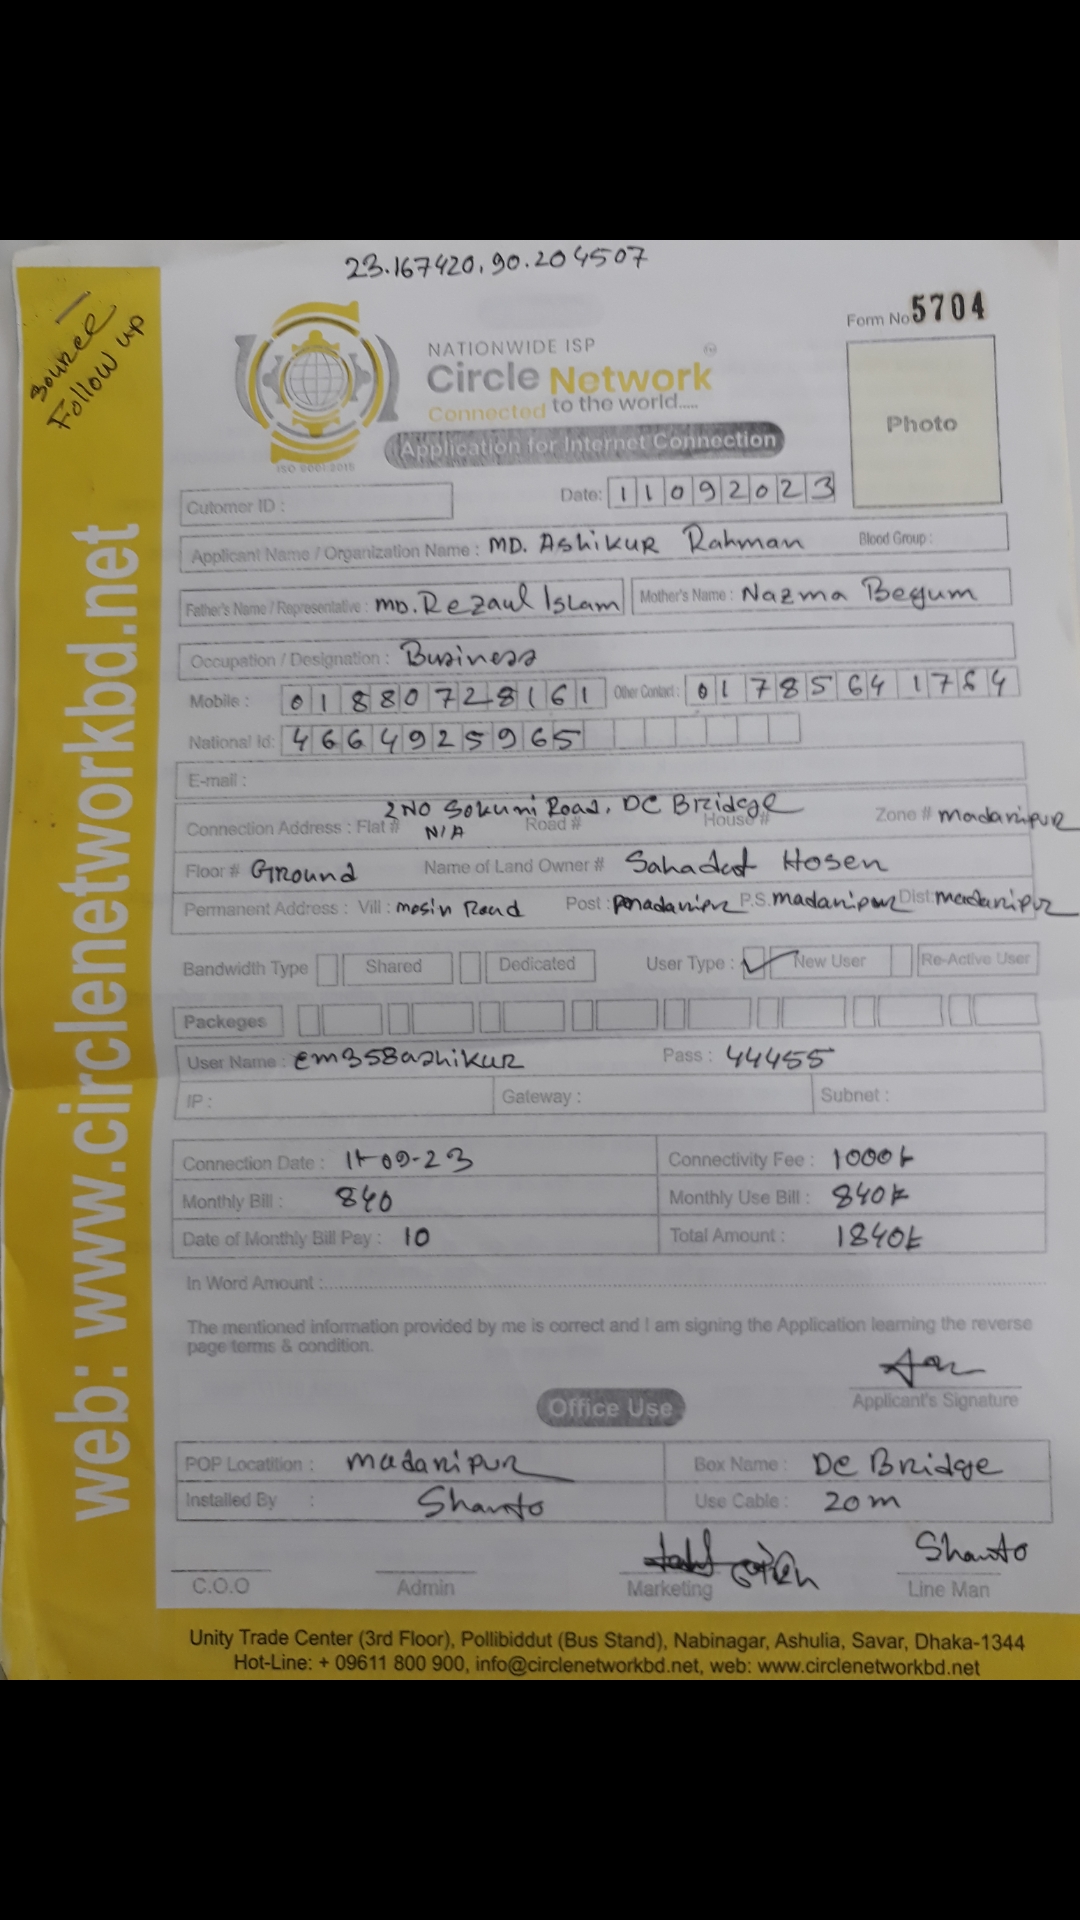 23.167420, 90.204507
Source
Follow up
web: www.circlenetworkbd.net
Form No 5704
NATIONWIDE ISP
Circle Network
Connected to the world.....
ISO 9001:2015
Application for Internet Connection
Photo
Cutomer ID :
Date: 11092023
Applicant Name / Organization Name : MD. Ashikur Rahman Blood Group :
Father's Name / Representative : MD. Rezaul Islam Mother's Name : Nazma Begum
Occupation / Designation : Business
Mobile : 01880728161 Other Contact : 01785641784
National Id: 4664925965
E-mail :
2 No Sokuni Road, DC Bridge
Connection Address : Flat # N/A Road # House # Zone # madaripur
Floor # Ground Name of Land Owner # Sahadat Hosen
Permanent Address : Vill : mosin Road Post : madaripur P.S. madaripur Dist: madaripur
Bandwidth Type Shared Dedicated User Type : ✓ New User Re-Active User
Packeges
User Name : em358ashikur Pass : 44455
IP : Gateway : Subnet :
Connection Date : 11-09-23 Connectivity Fee : 1000৳
Monthly Bill : 840 Monthly Use Bill : 840৳
Date of Monthly Bill Pay : 10 Total Amount : 1840৳
In Word Amount :
The mentioned information provided by me is correct and I am signing the Application learning the reverse
page terms & condition.
Applicant's Signature
Office Use
POP Locatition : madaripur Box Name : DC Bridge
Installed By : Shanto Use Cable : 20m
Shanto
C.O.O Admin Marketing Line Man
Unity Trade Center (3rd Floor), Pollibiddut (Bus Stand), Nabinagar, Ashulia, Savar, Dhaka-1344
Hot-Line: + 09611 800 900, info@circlenetworkbd.net, web: www.circlenetworkbd.net